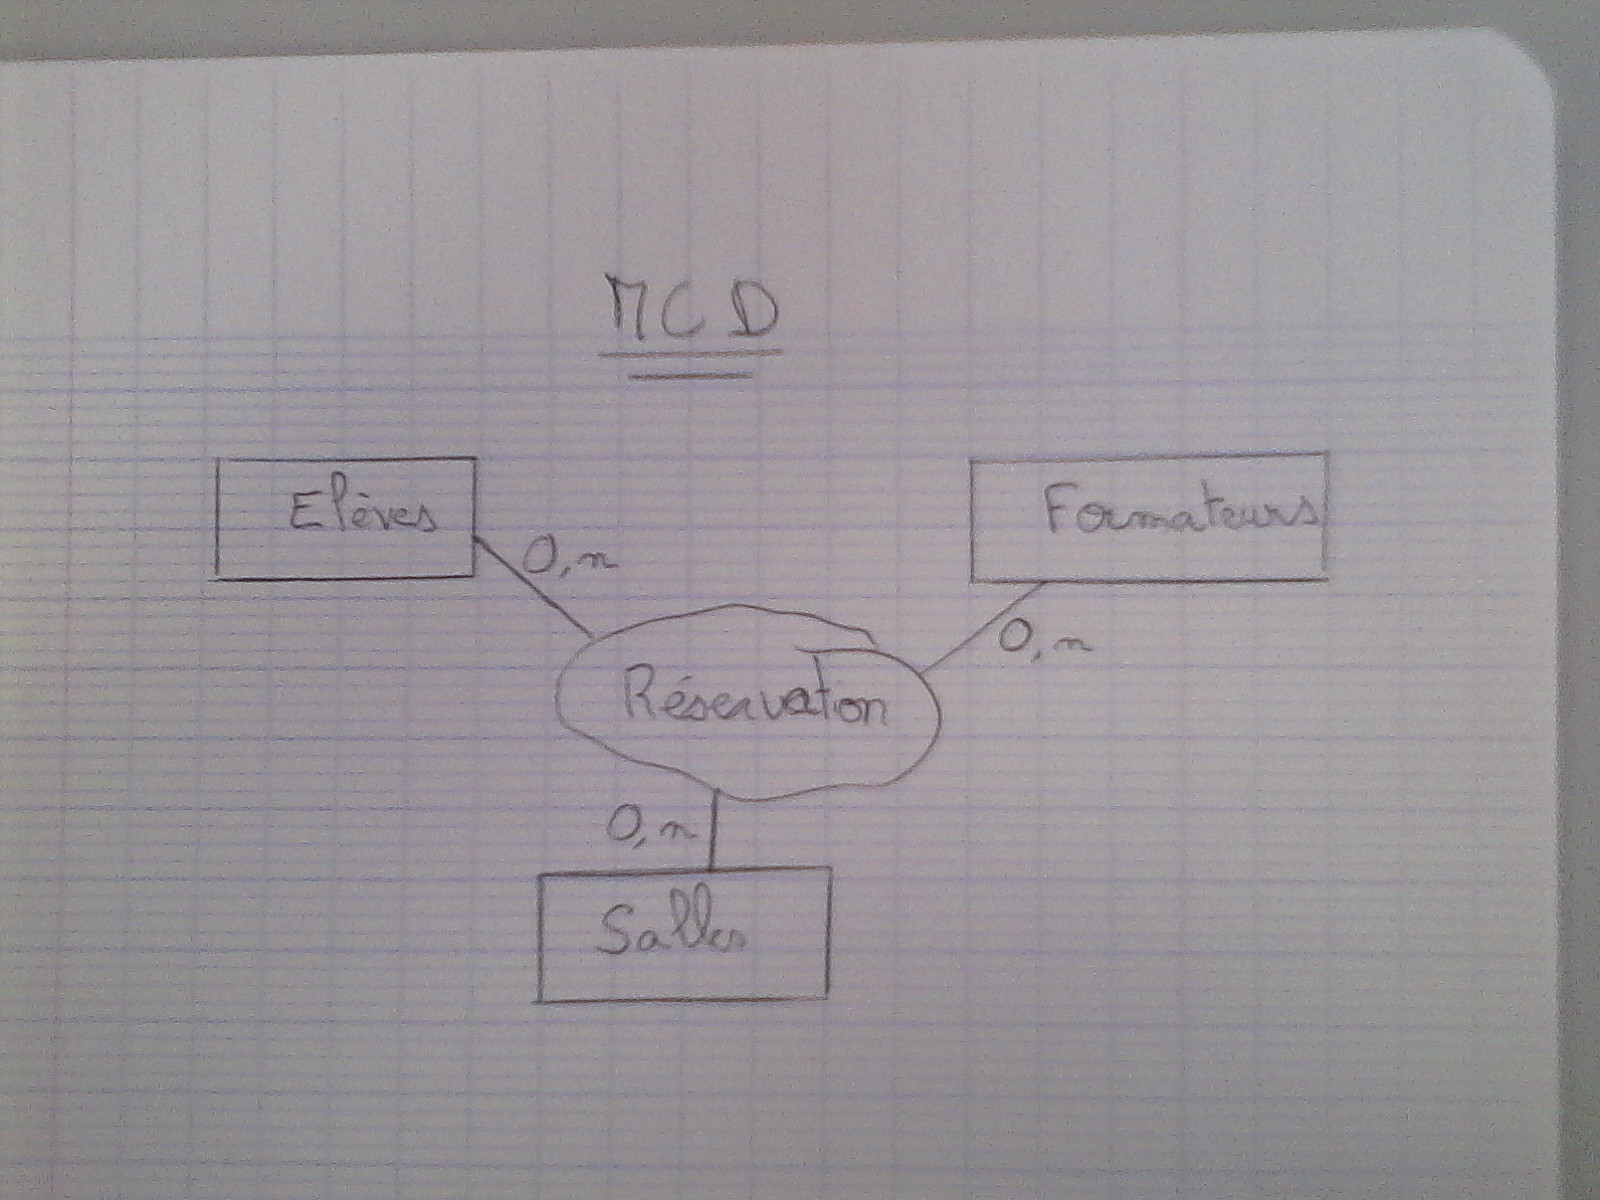 MCD
Elèves
Formateurs
0,n
0,n
Réservation
0,n
Salles